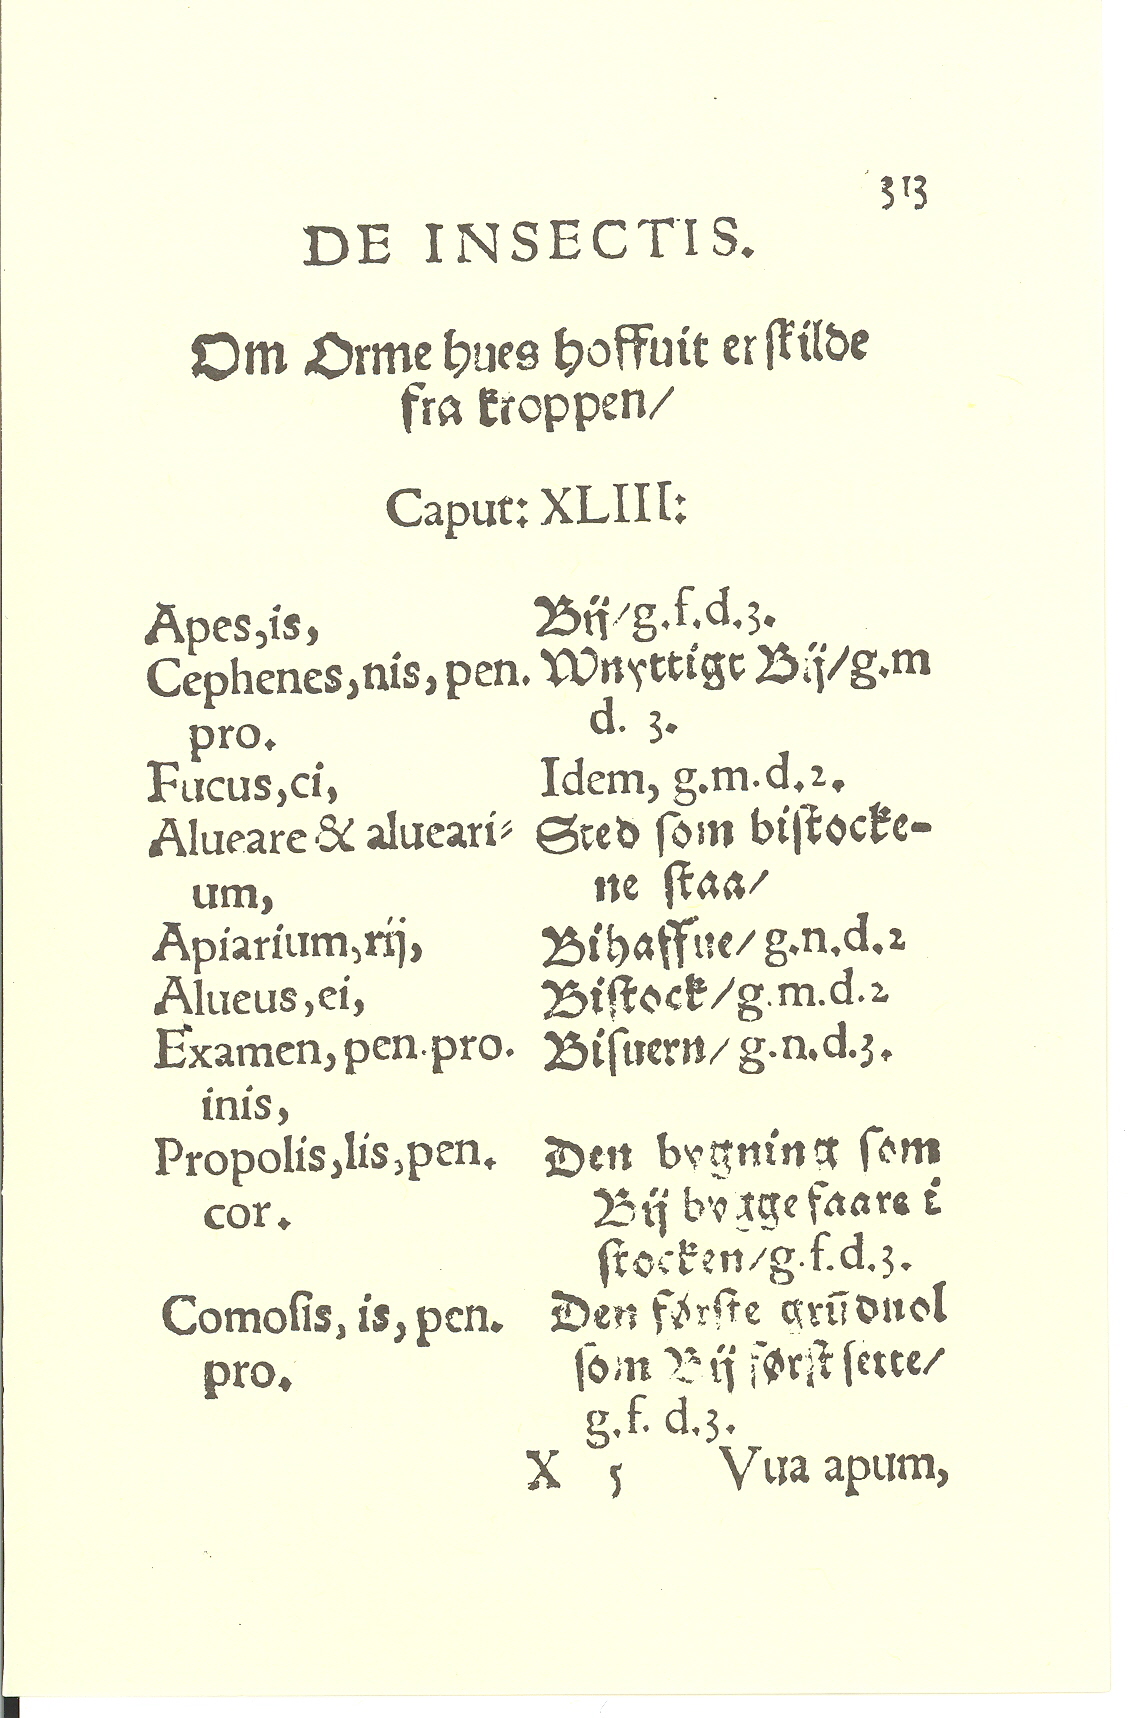 313
DE INSECTIS.
Om Orme hues hoffuit er skilde
fra kroppen/
Caput: XLIII:
Apes,is, Bij/g.f.d.3.
Cephenes,nis, pen. Wnyttigt Bij/g.m
pro. d. 3.
Fucus,ci, Idem, g.m.d.2.
Alueare & alueari⸗ Sted som bistocke-
um, ne staa/
Apiarium,rij, Bihaffue/ g.n.d.2
Alueus,ei, Bistock/g.m.d.2
Examen,pen.pro. Bisuern/ g.n.d.3.
inis,
Propolis,lis,pen. Den bygning som
cor. Bij bygge faare i
stocken/g.f.d.3.
Comosis, is, pen. Den første grūduol
pro. som Bij først sette/
g.f. d.3.
X 5 Vua apum,